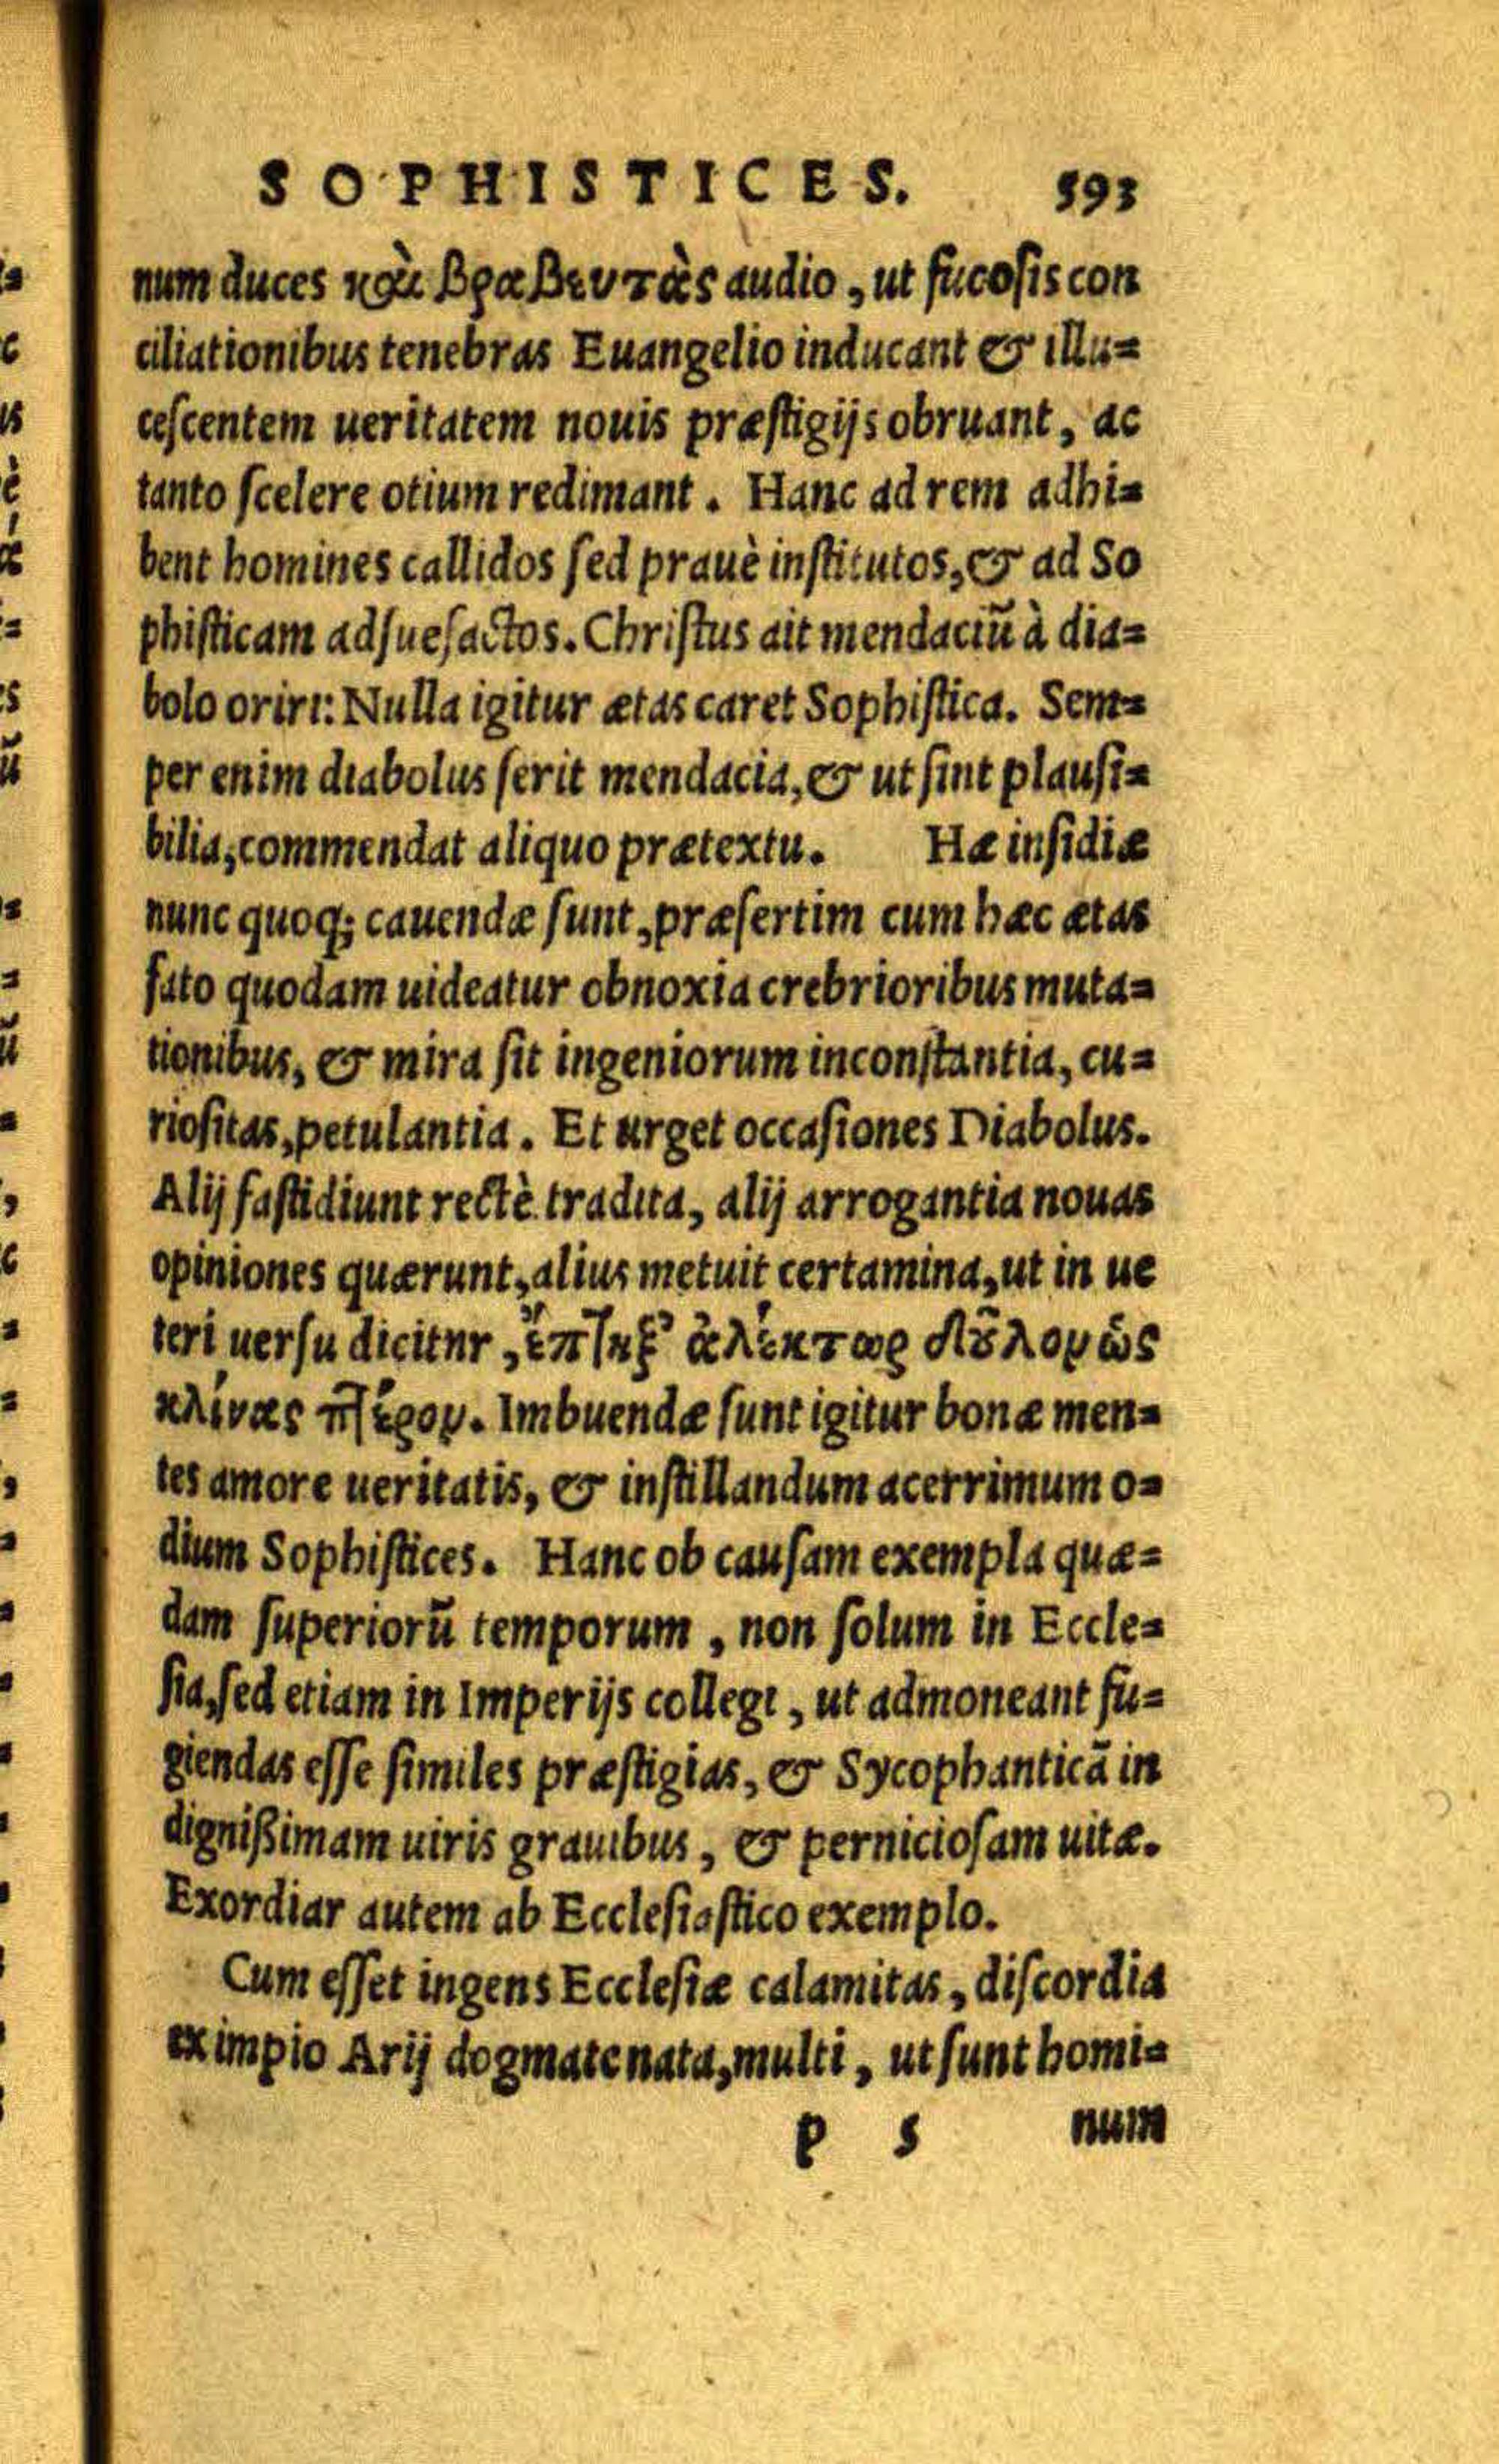 SOPHISTICES. 593
num duces καὶ βραβευτὰς audio, ut fucosis con
ciliationibus tenebras Euangelio inducant & illu=
cescentem ueritatem nouis præstigijs obruant, ac
tanto scelere otium redimant. Hanc ad rem adhi=
bent homines callidos sed prauè institutos, & ad So
phisticam adsuefactos. Christus ait mendaciũ à dia=
bolo oriri: Nulla igitur ætas caret Sophistica. Sem=
per enim diabolus serit mendacia, & ut sint plausi=
bilia, commendat aliquo prætextu. Hæ insidiæ
nunc quoq; cauendæ sunt, præsertim cum hæc ætas
fato quodam uideatur obnoxia crebrioribus muta=
tionibus, & mira sit ingeniorum inconstantia, cu=
riositas, petulantia. Et urget occasiones Diabolus.
Alij fastidiunt rectè tradita, alij arrogantia nouas
opiniones quærunt, alius metuit certamina, ut in ue
teri uersu dicitnr, ἔπτηξ' ἀλέκτωρ δοῦλον ὡς
κλίνας πτέρον. Imbuendæ sunt igitur bonæ men=
tes amore ueritatis, & instillandum acerrimum o=
dium Sophistices. Hanc ob causam exempla quæ=
dam superiorũ temporum, non solum in Eccle=
sia, sed etiam in Imperijs collegi, ut admoneant fu=
giendas esse similes præstigias, & Sycophanticã in
dignißimam uiris grauibus, & perniciosam uitæ.
Exordiar autem ab Ecclesiastico exemplo.
Cum esset ingens Ecclesiæ calamitas, discordia
ex impio Arij dogmate nata, multi, ut sunt homi=
P 5 num